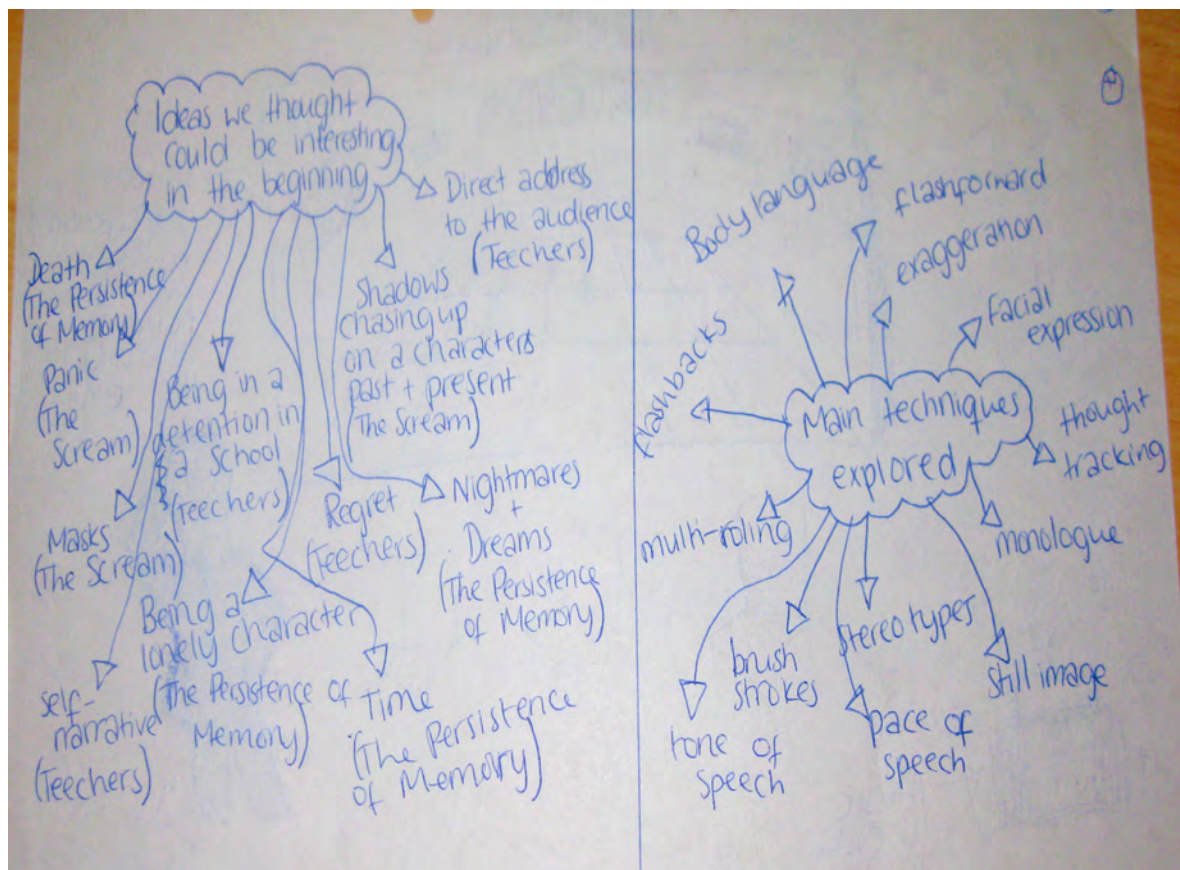 Ideas we thought
could be interesting
in the beginning
Direct address
to the audience
(Teechers)
Death
(The Persistence
of Memory)
Panic
(The
Scream)
Being in a
detention in
a School
(Teechers)
Shadows
chasing up
on a characters
past + present
(The Scream)
Masks
(The Scream)
Regret
(Teechers)
Nightmares
+
Dreams
(The Persistence
of Memory)
Being a
lonely character
(The Persistence of
Memory)
self-
narrative
(Teechers)
Time
(The Persistence
of Memory)
Main techniques
explored
Body language
flashforward
exaggeration
facial
expression
flashbacks
thought
tracking
multi-roling
monologue
brush
strokes
stereotypes
still image
tone of
speech
pace of
speech